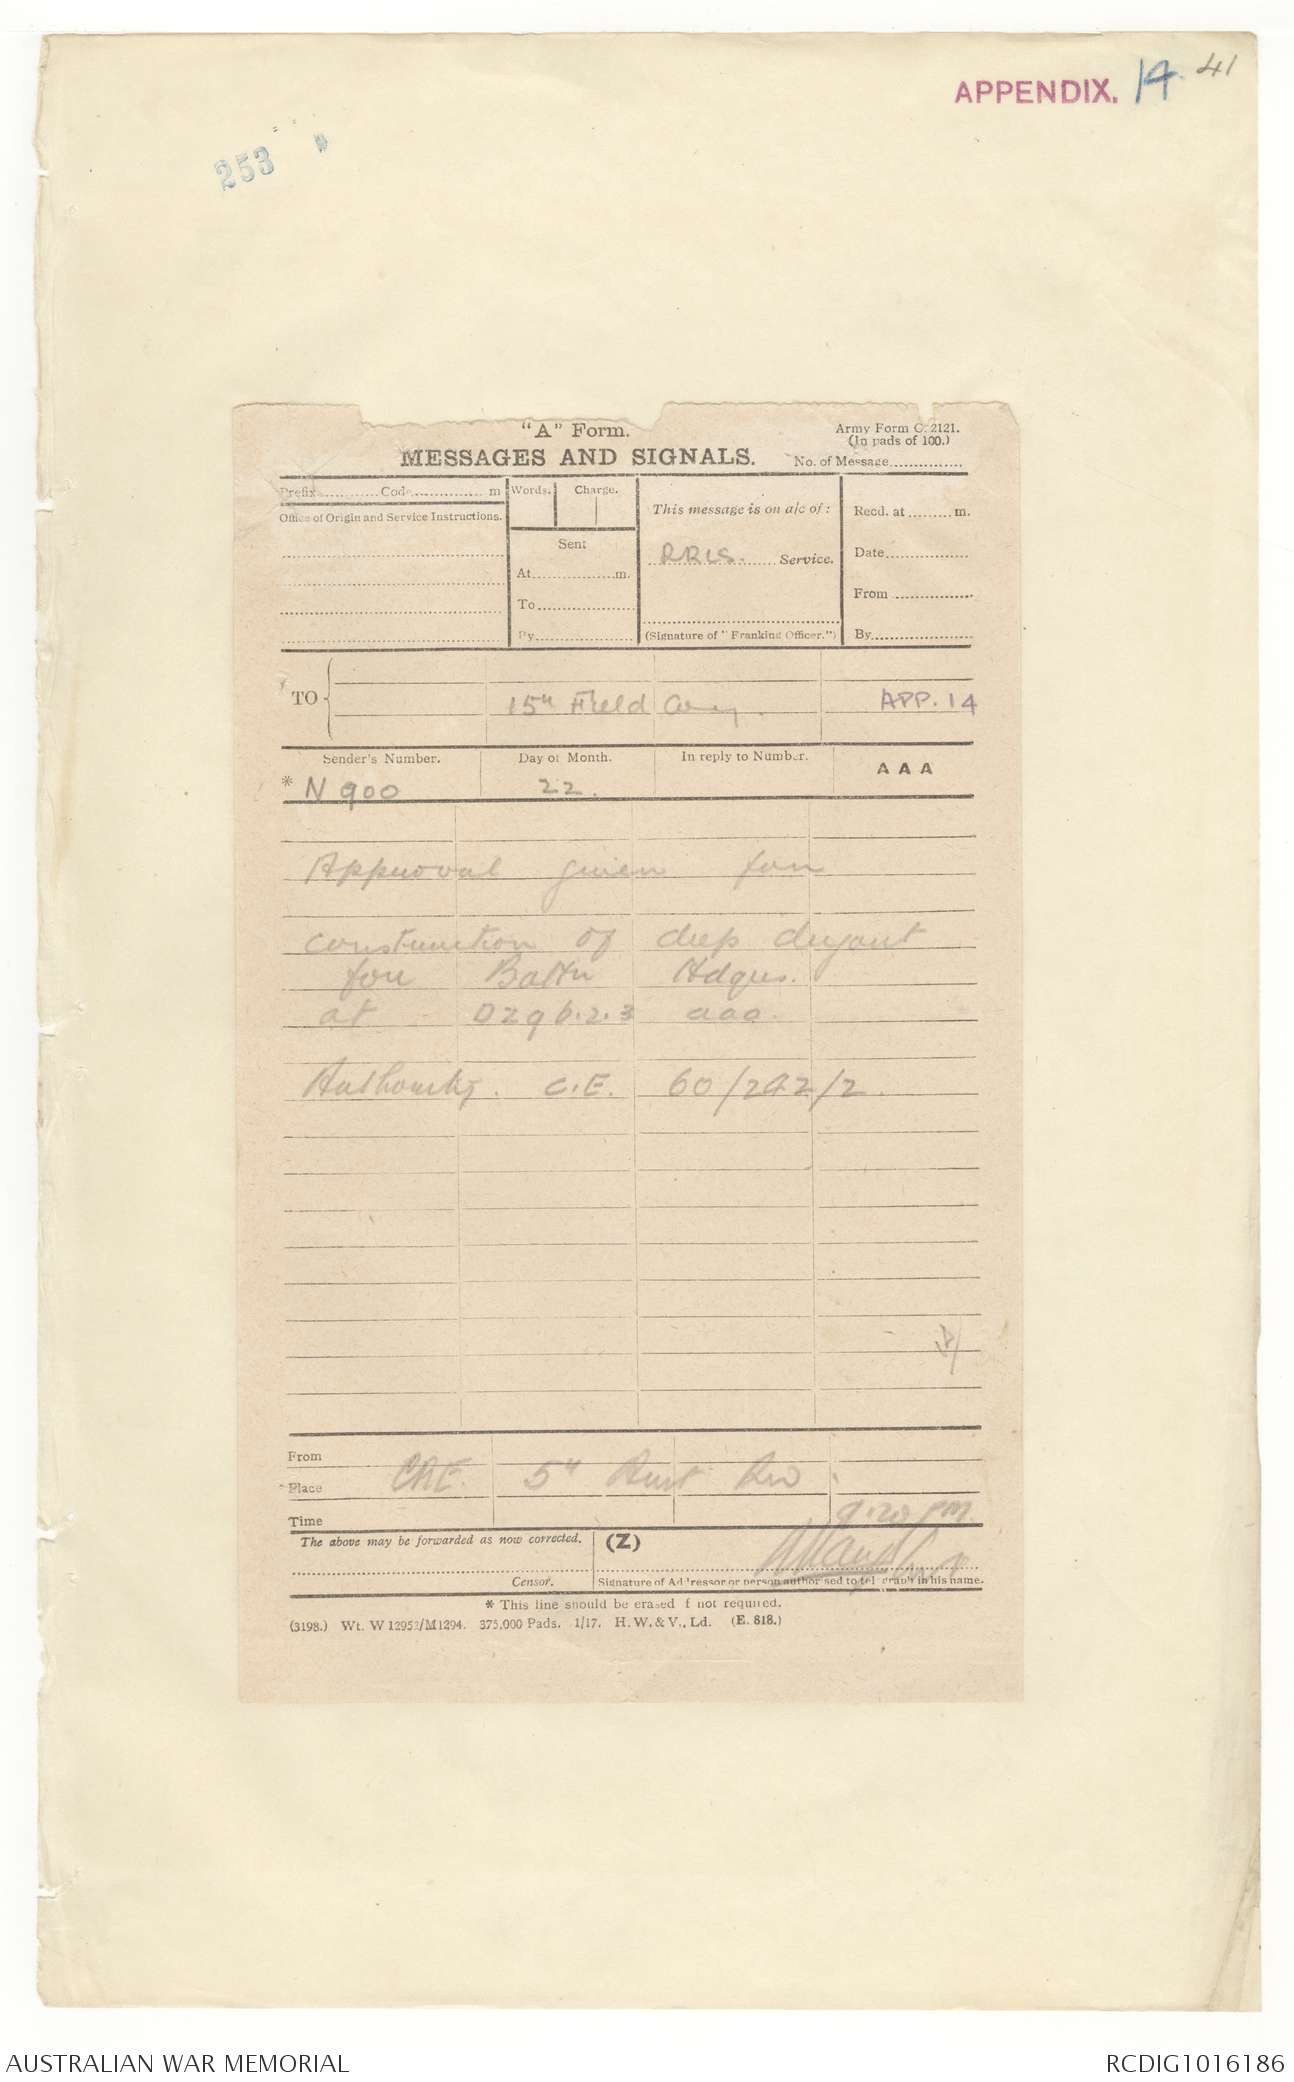 APPENDIX. 14. 41
253
"A" Form.
MESSAGES AND SIGNALS.
Army Form C. 2121.
(In pads of 100.)
No. of Message
Prefix Code m
Words. Charge.
This message is on a/c of:
Recd. at m.
Office of Origin and Service Instructions.
Sent
At m.
To
By
Service.
(Signature of "Franking Officer.")
Date
From
By
TO
15th Field Coy.
APP. 14
Sender's Number. Day of Month. In reply to Number. AAA
* N 900 22.
Approval given for
construction of deep dugout
for Battn Hdqrs.
at D29b.2.3 aaa.
Authority. C.E. 60/242/2.
From
Place
CRE. 5th Aust Div.
Time 9.20 PM
The above may be forwarded as now corrected. (Z)
Censor. Signature of Addressor or person authorised to telegraph in his name.
* This line should be erased if not required.
(3198.) Wt. W12952/M1294. 375,000 Pads. 1/17. H.W.&V., Ld. (E. 818.)
AUSTRALIAN WAR MEMORIAL
RCDIG1016186